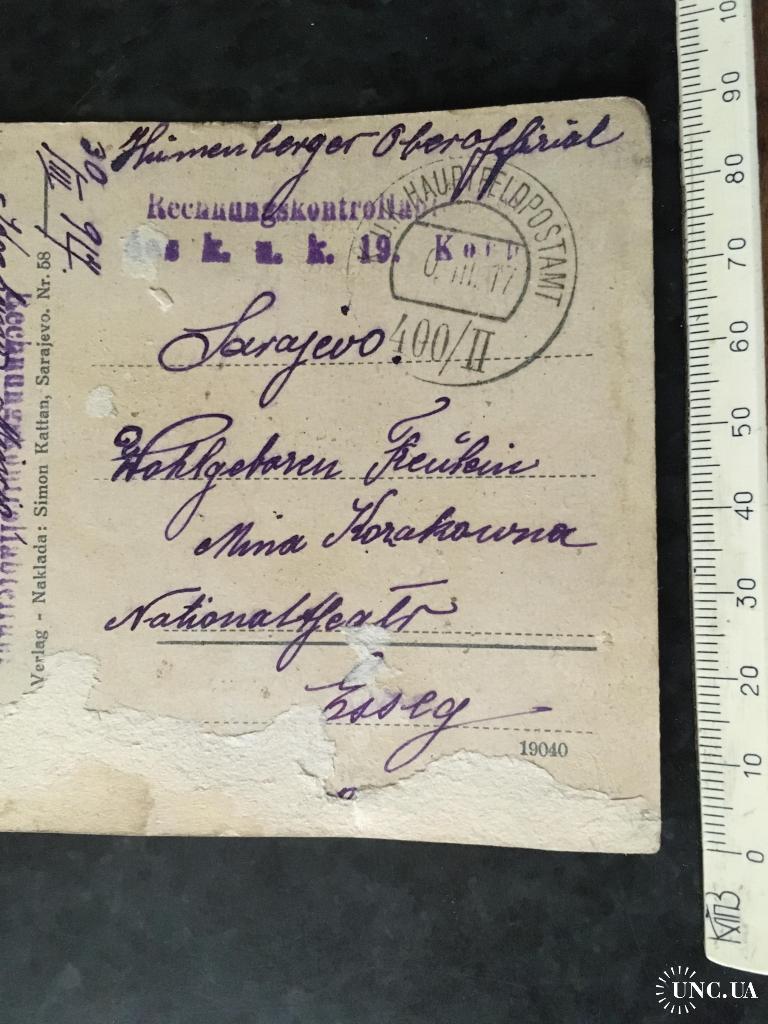 Himenberger Oberoffizial
30/III. 917.
Rechnungskontrolle
des k. u. k. 19. Korp
K. U. K. HAUPTFELDPOSTAMT
0. III. 17
400/II
Sarajevo.
Wohlgeboren Freulein
Mina Kozakowna
Nationaltheatr
Esseg
19040
Verlag - Naklada: Simon Kattan, Sarajevo. Nr. 58
0 10 20 30 40 50 60 70 80 90 10
КПВ
UNC.UA